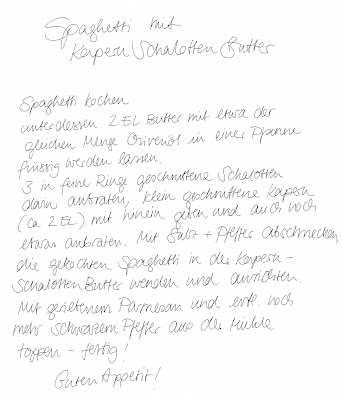 Spaghetti mit
Kapern/Schalotten Butter
Spaghetti kochen
unterdessen 2 EL Butter mit etwa der
gleichen Menge Olivenöl in einer Pfanne
flüssig werden lassen.
3 in feine Ringe geschnittene Schalotten
darin anbraten, klein geschnittene Kapern
(ca 2 EL) mit hinein geben und auch noch
etwas anbraten. Mit Salz + Pfeffer abschmecken,
die gekochten Spaghetti in der Kapern-
Schalotten Butter wenden und anrichten.
Mit geriebenem Parmesan und evtl. noch
mehr schwarzem Pfeffer aus der Mühle
toppen - fertig!
Guten Appetit!